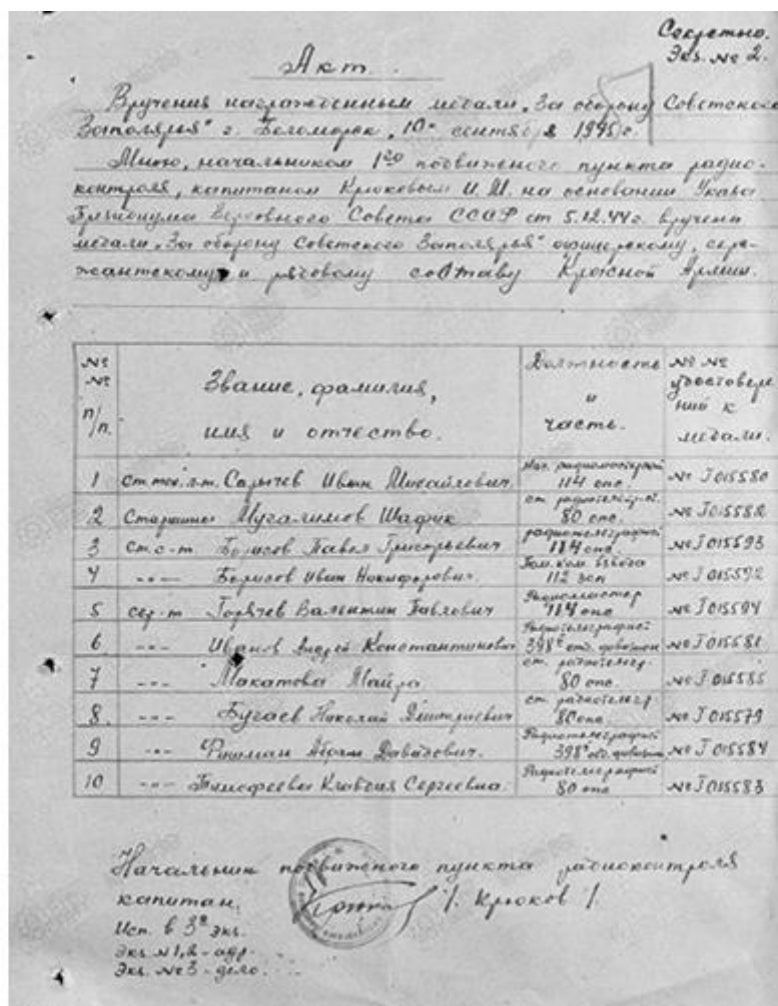 Секретно.
Экз. № 2.
Акт.
Вручения награжденным медали „За оборону Советского
Заполярья" г. Беломорск, 10 сентября 1945 г.
Мною, начальником 1го подвижного пункта радио-
контроля, капитаном Крюковым И.И. на основании Указа
Президиума Верховного Совета СССР от 5.12.44 г. вручены
медали „За оборону Советского Заполярья" офицерскому, сер-
жантскому и рядовому составу Красной Армии.
№ № п/п. Звание, фамилия, имя и отчество. Должность и часть. № № удостоверений к медали.
1 ст. тех. л-т. Сарычев Иван Михайлович Нач. радиомастерской 114 опс. № Т 015580
2 Старшина Мугалимов Шафик ст. радиотелегр. 80 опс. № Т 015582
3 Ст. с-т Борисов Павел Григорьевич радиотелеграфист 114 опс. № Т 015593
4 -"- Борисов Иван Никифорович. Пом. ком. взвода 112 зсп № Т 015592
5 сер-т Горячев Валентин Павлович Радиомастер 114 опс № Т 015594
6 -"- Иванов Андрей Константинович Радиотелеграфист 398 отд. № Т 015581
7 -"- Макатова Майра ст. радиотелегр. 80 опс № Т 015585
8 -"- Бугаев Николай Дмитриевич ст. радиотелегр. 80 опс. № Т 015579
9 -"- Фишман Абрам Давидович. Радиотелеграфист 398 отд. № Т 015584
10 -"- Тимофеева Клавдия Сергеевна. Радиотелеграфист 80 опс № Т 015583
Начальник подвижного пункта радиоконтроля
капитан. /. Крюков /.
Исп. в 3х экз.
Экз. № 1, 2 - адр.
Экз. № 3 - дело.